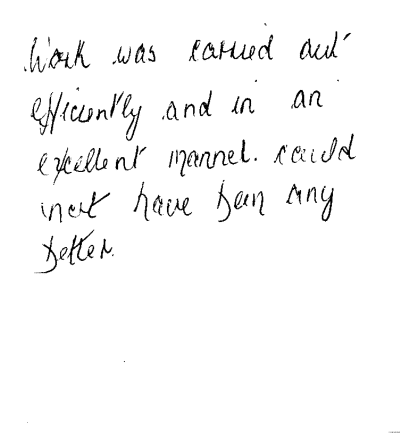 Work was carried out
efficiently and in an
excellent manner. could
not have been any
better.